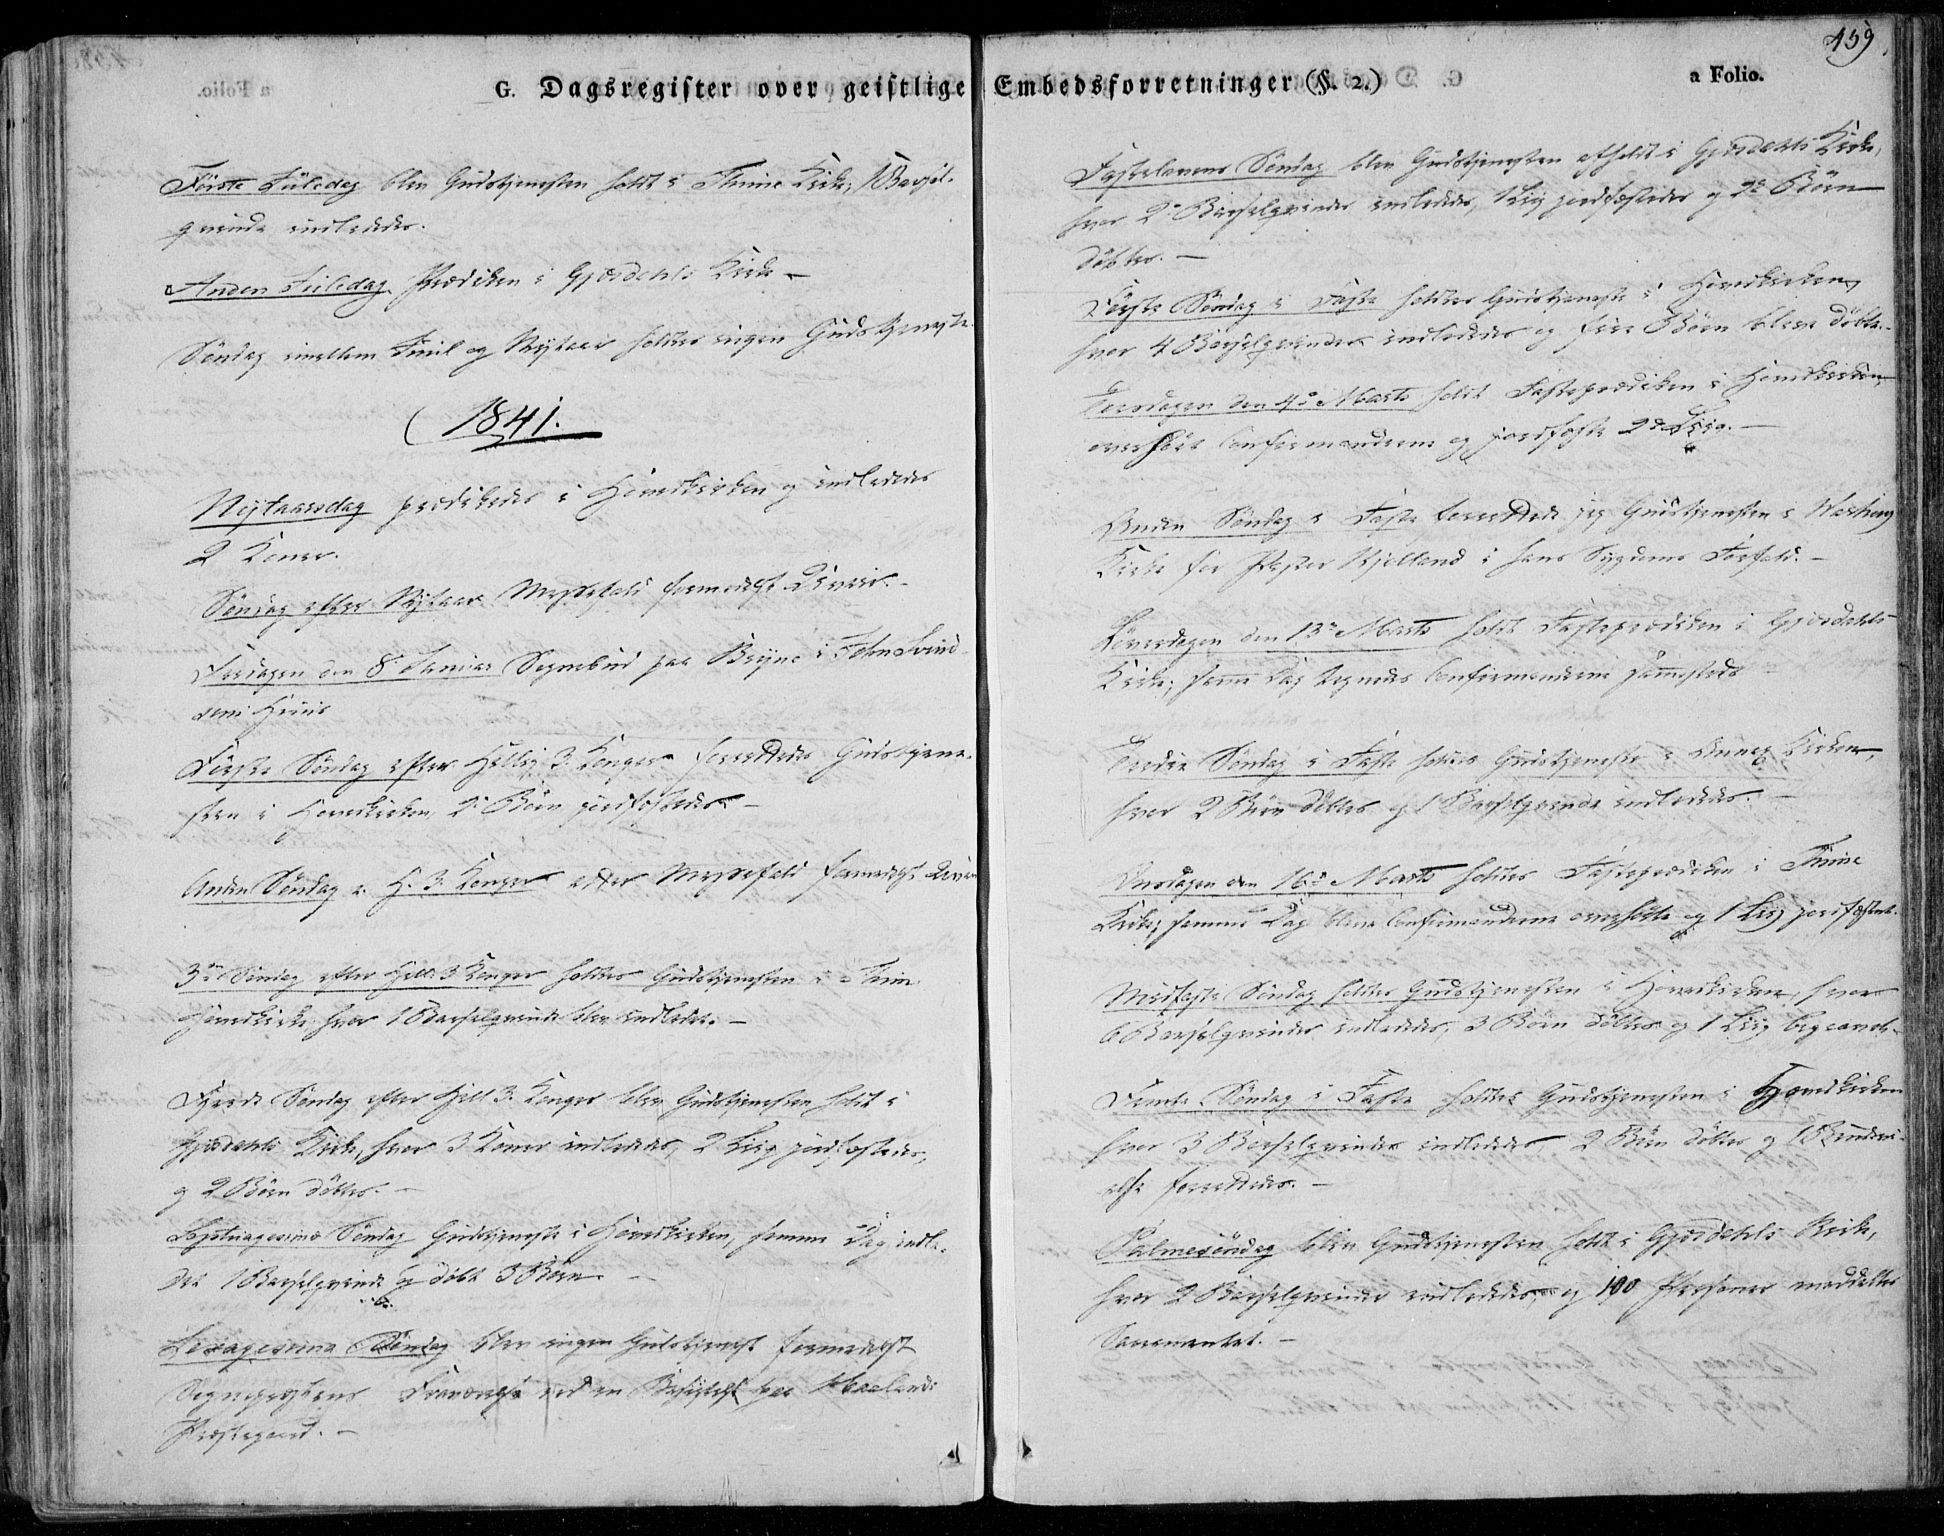 G. Dagsregister over geistlige Embedsforretninger (§. 2.)
Første Juledag blev Gudstjenesten holdt i Thime Kirke, 1 Barsel-
qvinde indlededes.
Anden Juledag Prædiken i Gjesdahls Kirke. —
Søndag imellem Juul og Nytaar holdtes ingen Gudstjeneste.
1841.
Nytaarsdag prædikedes i Hovedkirken og indlededes
2 Koner.
Søndag efter Nytaar Messefald formedelst Uveir. —
Fredagen den 8de Januar Sognebud paa Bryne i
Huus
Første Søndag efter Hellig 3 Konger forrettedes Gudstjene-
sten i Hovedkirken, 2de Børn jordfæstedes. —
Anden Søndag e. H. 3 Konger atter Messefald formedelst Uveir
3die Søndag efter Hell. 3 Konger holdtes Gudstjenesten i Thime
Hovedkirke hvor 1 Barselqvinde blev indledet. —
Fjerde Søndag efter Hell. 3 Konger blev Gudstjenesten holdt i
Gjesdahls Kirke, hvor 3 Koner indlededes, 2 Liig jordfæstedes,
og 2 Børn døbtes. —
Septuagesima Søndag Gudstjeneste i Hovedkirken, samme Dag indle-
det 1 Barselqvinde og døbt 3 Børn. —
Sexagesima Søndag blev ingen Gudstjenest formedelst
Sognepræstens Fraværelse ved en paa
Præstegaard. —
459
a Folio.
Fastelavens Søndag blev Gudstjenesten afholdt i Gjesdahls Kirke,
hvor 2de Barselqvinder indlededes, 1 Liig jordfæstedes og 2de Børn
døbtes. —
Første Søndag i Faste holdtes Gudstjeneste i Hovedkirken,
hvor 4 Barselqvinder indlededes og fire Børn bleve døbte. —
Torsdagen den 4de Marts holdt Fasteprædiken i Hovedkirken,
overhørt Confirmanderne og jordfæstet 2de Liig. —
Anden Søndag i Faste forrettede jeg Gudstjenesten i
Kirke for Pastor Kjelland i hans Sygdoms Forfald. —
Løverdagen den 13de Marts holdt Fasteprædiken i Gjesdahls
Kirke; samme Dag Confirmanderne sammesteds
Tredie Søndag i Faste holdtes Gudstjeneste i Annex Kirken,
hvor 2 Børn døbtes og 1 Barselqvinde indlededes. —
den 16de Marts holdtes Fasteprædiken i Thime
Kirke, samme Dag bleve Confirmanderne overhørte og 1 Liig jordfæstet.
Midfaste Søndag holdtes Gudstjenesten i Hovedkirken, hvor
6 Barselqvinder indlededes, 3 Børn døbtes og 1 Liig begravet.
Femte Søndag i Faste holdtes Gudstjenesten i Hovedkirken
hvor 3 Barselqvinder indlededes, 2 Børn døbtes og 1
forrettedes. —
Palmesøndag blev Gudstjenesten holdt i Gjesdahls Kirke,
hvor 2 Barselqvinder indlededes og 100 Personer meddeltes
Sacramentet. —